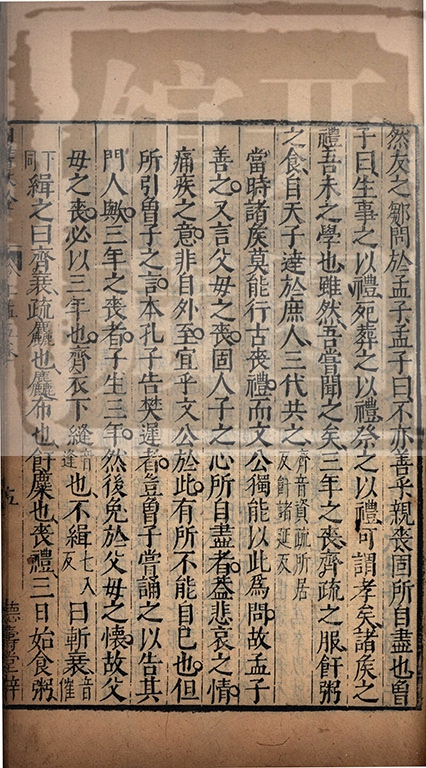 然友之鄒問於孟子孟子曰不亦善乎親喪固所自盡也曾
子曰生事之以禮死葬之以禮祭之以禮可謂孝矣諸矦之
禮吾未之學也雖然吾嘗聞之矣三年之喪齊疏之服飦粥
之食自天子達於庶人三代共之齊音資疏所居反飦諸延反
當時諸矦莫能行古喪禮而文公獨能以此爲問故孟子
善之又言父母之喪固人子之心所自盡者葢悲哀之情
痛疾之意非自外至宜乎文公於此有所不能自已也但
所引曾子之言本孔子告樊遲者豈曾子嘗誦之以告其
門人歟三年之喪者子生三年然後免於父母之懷故父
母之喪必以三年也齊衣下縫音逢也不緝七入反曰斬衰音催
下同緝之曰齊衰疏麤也麤布也飦糜也喪禮三日始食粥
德壽堂梓